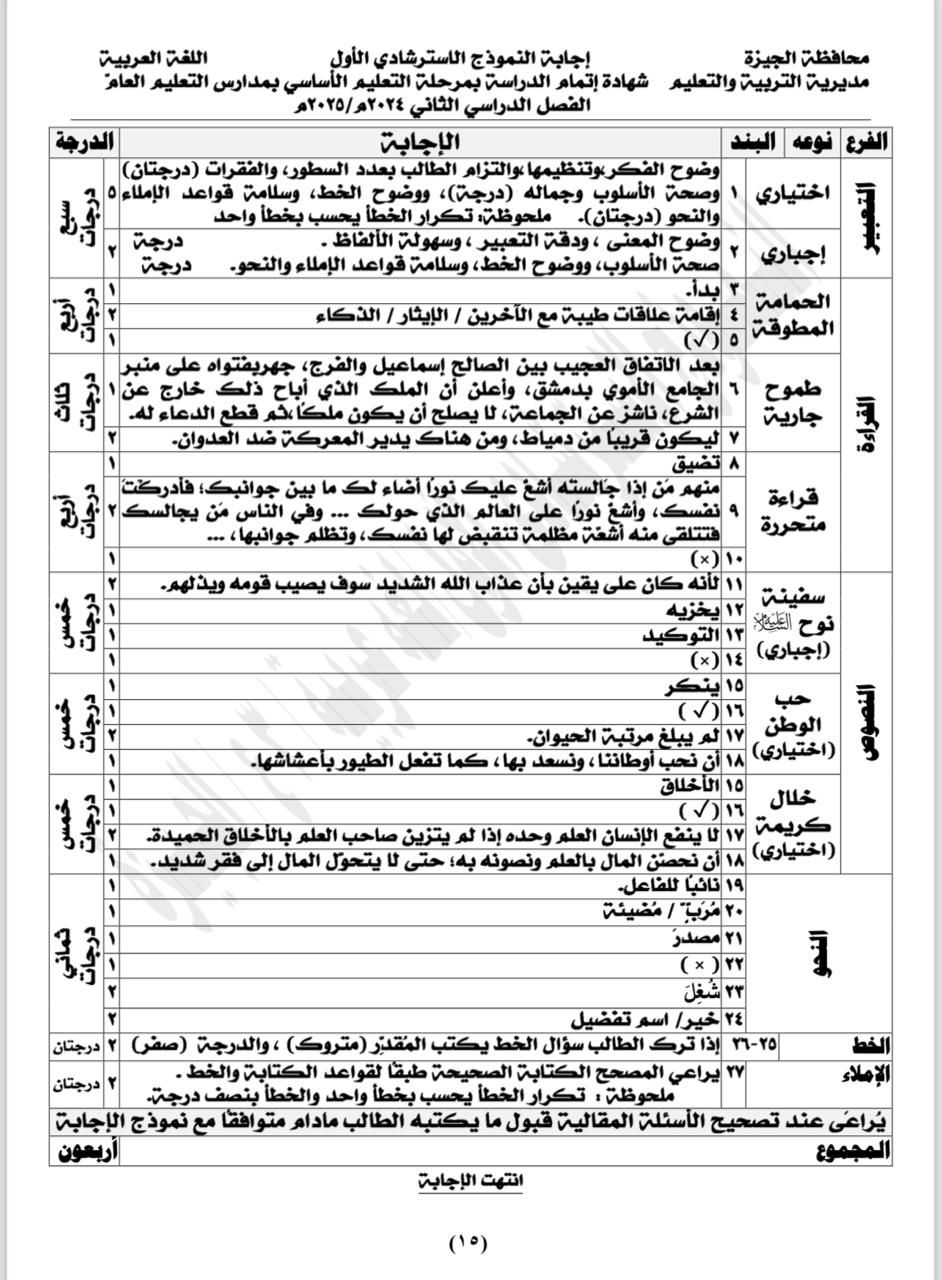 محافظة الجيزة إجابة النموذج الاسترشادي الأول اللغة العربية
مديرية التربية والتعليم شهادة إتمام الدراسة بمرحلة التعليم الأساسي بمدارس التعليم العام
الفصل الدراسي الثاني ٢٠٢٤م/٢٠٢٥م
الفرع نوعه البند الإجابة الدرجة
التعبير
اختياري ١ وضوح الفكر،وتنظيمها،والتزام الطالب بعدد السطور، والفقرات (درجتان)
وصحة الأسلوب وجماله (درجة)، ووضوح الخط، وسلامة قواعد الإملاء
والنحو (درجتان). ملحوظة: تكرار الخطأ يحسب بخطأ واحد
٥ سبع درجات
إجباري ٢ وضوح المعنى ، ودقة التعبير ، وسهولة الألفاظ . درجة
صحة الأسلوب، ووضوح الخط، وسلامة قواعد الإملاء والنحو. درجة
٢
القراءة
الحمامة المطوقة
٣ بدأ. ١
٤ إقامة علاقات طيبة مع الآخرين / الإيثار / الذكاء ٢
٥ (✓) ١
أربع درجات
طموح جارية
٦ بعد الاتفاق العجيب بين الصالح إسماعيل والفرج، جهربفتواه على منبر
الجامع الأموي بدمشق، وأعلن أن الملك الذي أباح ذلك خارج عن
الشرع، ناشز عن الجماعة، لا يصلح أن يكون ملكًا،ثم قطع الدعاء له.
١
٧ ليكون قريبًا من دمياط، ومن هناك يدير المعركة ضد العدوان. ٢
ثلاث درجات
قراءة متحررة
٨ تضيق ١
٩ منهم مَن إذا جالسته أشعّ عليك نورًا أضاء لك ما بين جوانبك؛ فأدركتَ
نفسك، وأشعّ نورًا على العالم الذي حولك ... وفي الناس مَن يجالسك
فتتلقى منه أشعّة مظلمة تنقبض لها نفسك، وتظلم جوانبها، ...
٢
١٠ (×) ١
أربع درجات
النصوص
سفينة نوح عليه السلام (إجباري)
١١ لأنه كان على يقين بأن عذاب الله الشديد سوف يصيب قومه ويذلهم. ٢
١٢ يخزيه ١
١٣ التوكيد ١
١٤ (×) ١
خمس درجات
حب الوطن (اختياري)
١٥ ينكر ١
١٦ (✓) ١
١٧ لم يبلغ مرتبة الحيوان. ٢
١٨ أن نحب أوطاننا ، ونسعد بها ، كما تفعل الطيور بأعشاشها. ١
خمس درجات
خلال كريمة (اختياري)
١٥ الأخلاق ١
١٦ (✓) ١
١٧ لا ينفع الإنسان العلم وحده إذا لم يتزين صاحب العلم بالأخلاق الحميدة. ٢
١٨ أن نحصّن المال بالعلم ونصونه به؛ حتى لا يتحوّل المال إلى فقر شديد. ١
خمس درجات
النحو
١٩ نائبًا للفاعل. ١
٢٠ مُرَبٍّ / مُضيئة ١
٢١ مصدرَ ١
٢٢ (×) ١
٢٣ شُغِلَ ٢
٢٤ خير/ اسم تفضيل ٢
ثماني درجات
الخط ٢٥-٢٦ إذا ترك الطالب سؤال الخط يكتب المُقدِّر (متروك) ، والدرجة (صفر) ٢ درجتان
الإملاء ٢٧ يراعي المصحح الكتابة الصحيحة طبقًا لقواعد الكتابة والخط .
ملحوظة : تكرار الخطأ يحسب بخطأ واحد والخطأ بنصف درجة.
٢ درجتان
يُراعَى عند تصحيح الأسئلة المقالية قبول ما يكتبه الطالب مادام متوافقًا مع نموذج الإجابة
المجموع أربعون
انتهت الإجابة
(١٥)